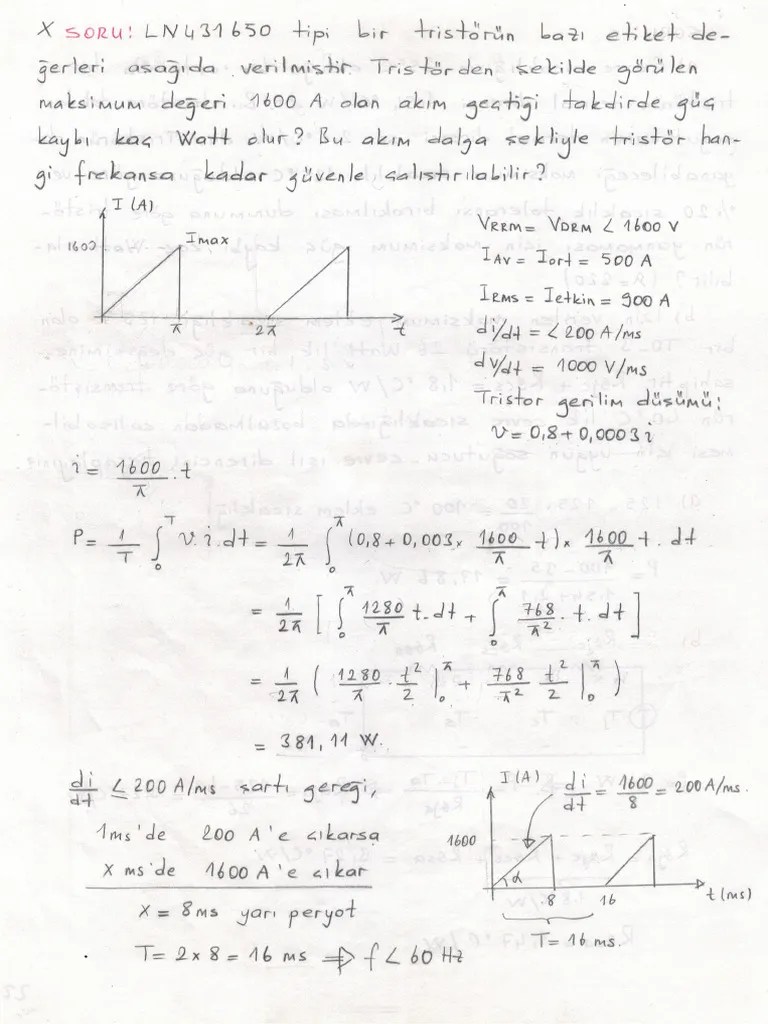 X SORU: LN431650 tipi bir tristörün bazı etiket de-
ğerleri aşağıda verilmiştir. Tristörden şekilde görülen
maksimum değeri 1600 A olan akım geçtiği takdirde güç
kaybı kaç Watt olur? Bu akım dalga şekliyle tristör han-
gi frekansa kadar güvenle çalıştırılabilir?
I (A)
1600
Imax
π
2π
t
VRRM = VDRM < 1600 V
IAV = Iort = 500 A
IRMS = Ietkin = 900 A
di/dt = < 200 A/ms
dv/dt = 1000 V/ms
Tristor gerilim düşümü;
v = 0,8 + 0,0003 i
i = 1600/π . t
P = 1/T ∫₀ᵀ v.i.dt = 1/2π ∫₀^π (0,8 + 0,003 x 1600/π t) x 1600/π t. dt
= 1/2π [ ∫₀^π 1280/π t.dt + ∫₀^π 768/π² . t. dt ]
= 1/2π ( 1280/π . t²/2 |₀^π + 768/π² t²/2 |₀^π )
= 381,11 W.
di/dt ≤ 200 A/ms şartı gereği,
1ms'de 200 A'e çıkarsa
x ms'de 1600 A'e çıkar
x = 8ms yarı peryot
T = 2 x 8 = 16 ms ⇒ f < 60 Hz
I (A)
di/dt = 1600/8 = 200 A/ms.
1600
α
8
16
t (ms)
T = 16 ms.